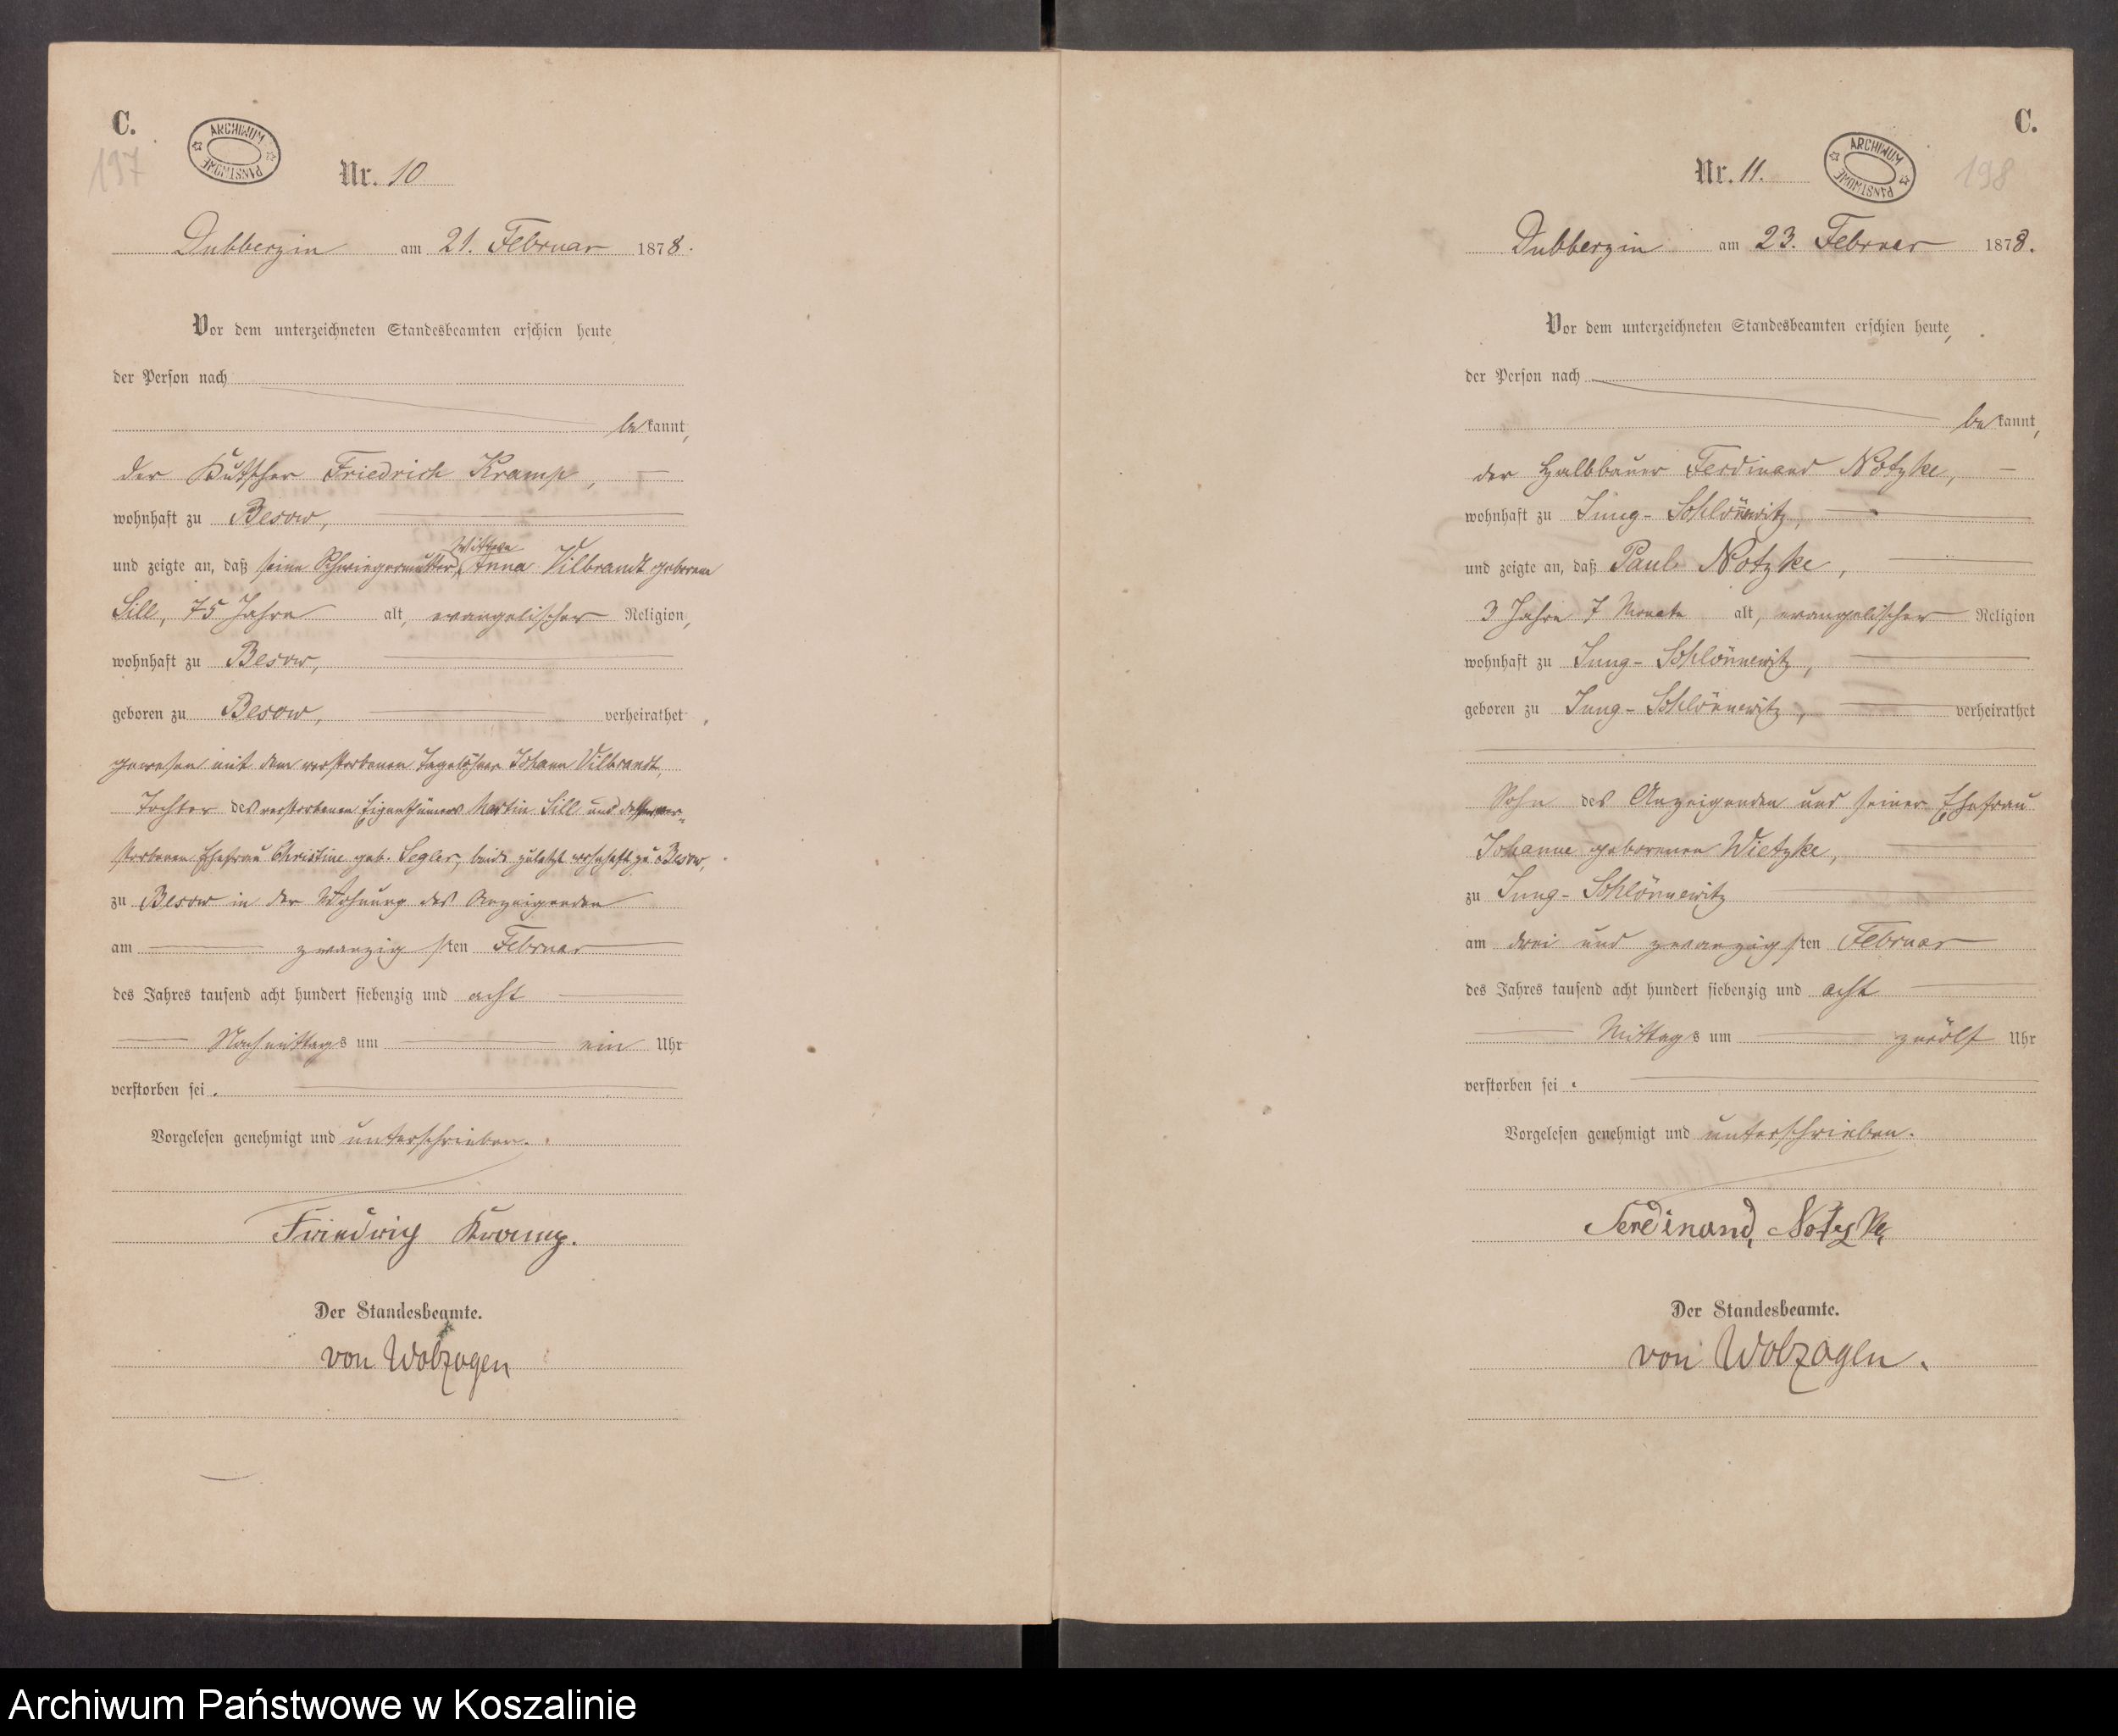 C.
197
ARCHIWUM PAŃSTWOWE
Nr. 10
Dubberzin am 21. Februar 1878.
Vor dem unterzeichneten Standesbeamten erschien heute,
der Person nach
bekannt,
der Kutscher Friedrich Kramp,
wohnhaft zu Besow,
Wittwe
und zeigte an, daß seine Schwiegermutter, Anna Vilbrandt geborene
Sill, 75 Jahre alt, evangelischer Religion,
wohnhaft zu Besow,
geboren zu Besow, verheirathet
gewesen mit dem verstorbenen Tagelöhner Johann Vilbrandt,
Tochter des verstorbenen Eigenthümers Martin Sill und dessen ver-
storbenen Ehefrau Christine geb. Segler, beide zuletzt wohnhaft zu Besow,
zu Besow in der Wohnung des Anzeigenden
am zwanzigsten Februar
des Jahres tausend acht hundert siebenzig und acht
Nachmittags um ein Uhr
verstorben sei.
Vorgelesen genehmigt und unterschrieben.
Friedrich Kramp.
Der Standesbeamte.
von Wolzogen
C.
198
ARCHIWUM PAŃSTWOWE
Nr. 11.
Dubberzin am 23. Februar 1878.
Vor dem unterzeichneten Standesbeamten erschien heute,
der Person nach
bekannt,
der Halbbauer Ferdinand Notzke,
wohnhaft zu Jung-Schlönnewitz,
und zeigte an, daß Paul Notzke,
3 Jahre 7 Monate alt, evangelischer Religion
wohnhaft zu Jung-Schlönnewitz,
geboren zu Jung-Schlönnewitz, verheirathet
Sohn des Anzeigenden und seiner Ehefrau
Johanne geborenen Wietzke,
zu Jung-Schlönnewitz
am drei und zwanzigsten Februar
des Jahres tausend acht hundert siebenzig und acht
Mittags um zwölf Uhr
verstorben sei.
Vorgelesen genehmigt und unterschrieben.
Ferdinand, Notzke,
Der Standesbeamte.
von Wolzogen.
Archiwum Państwowe w Koszalinie